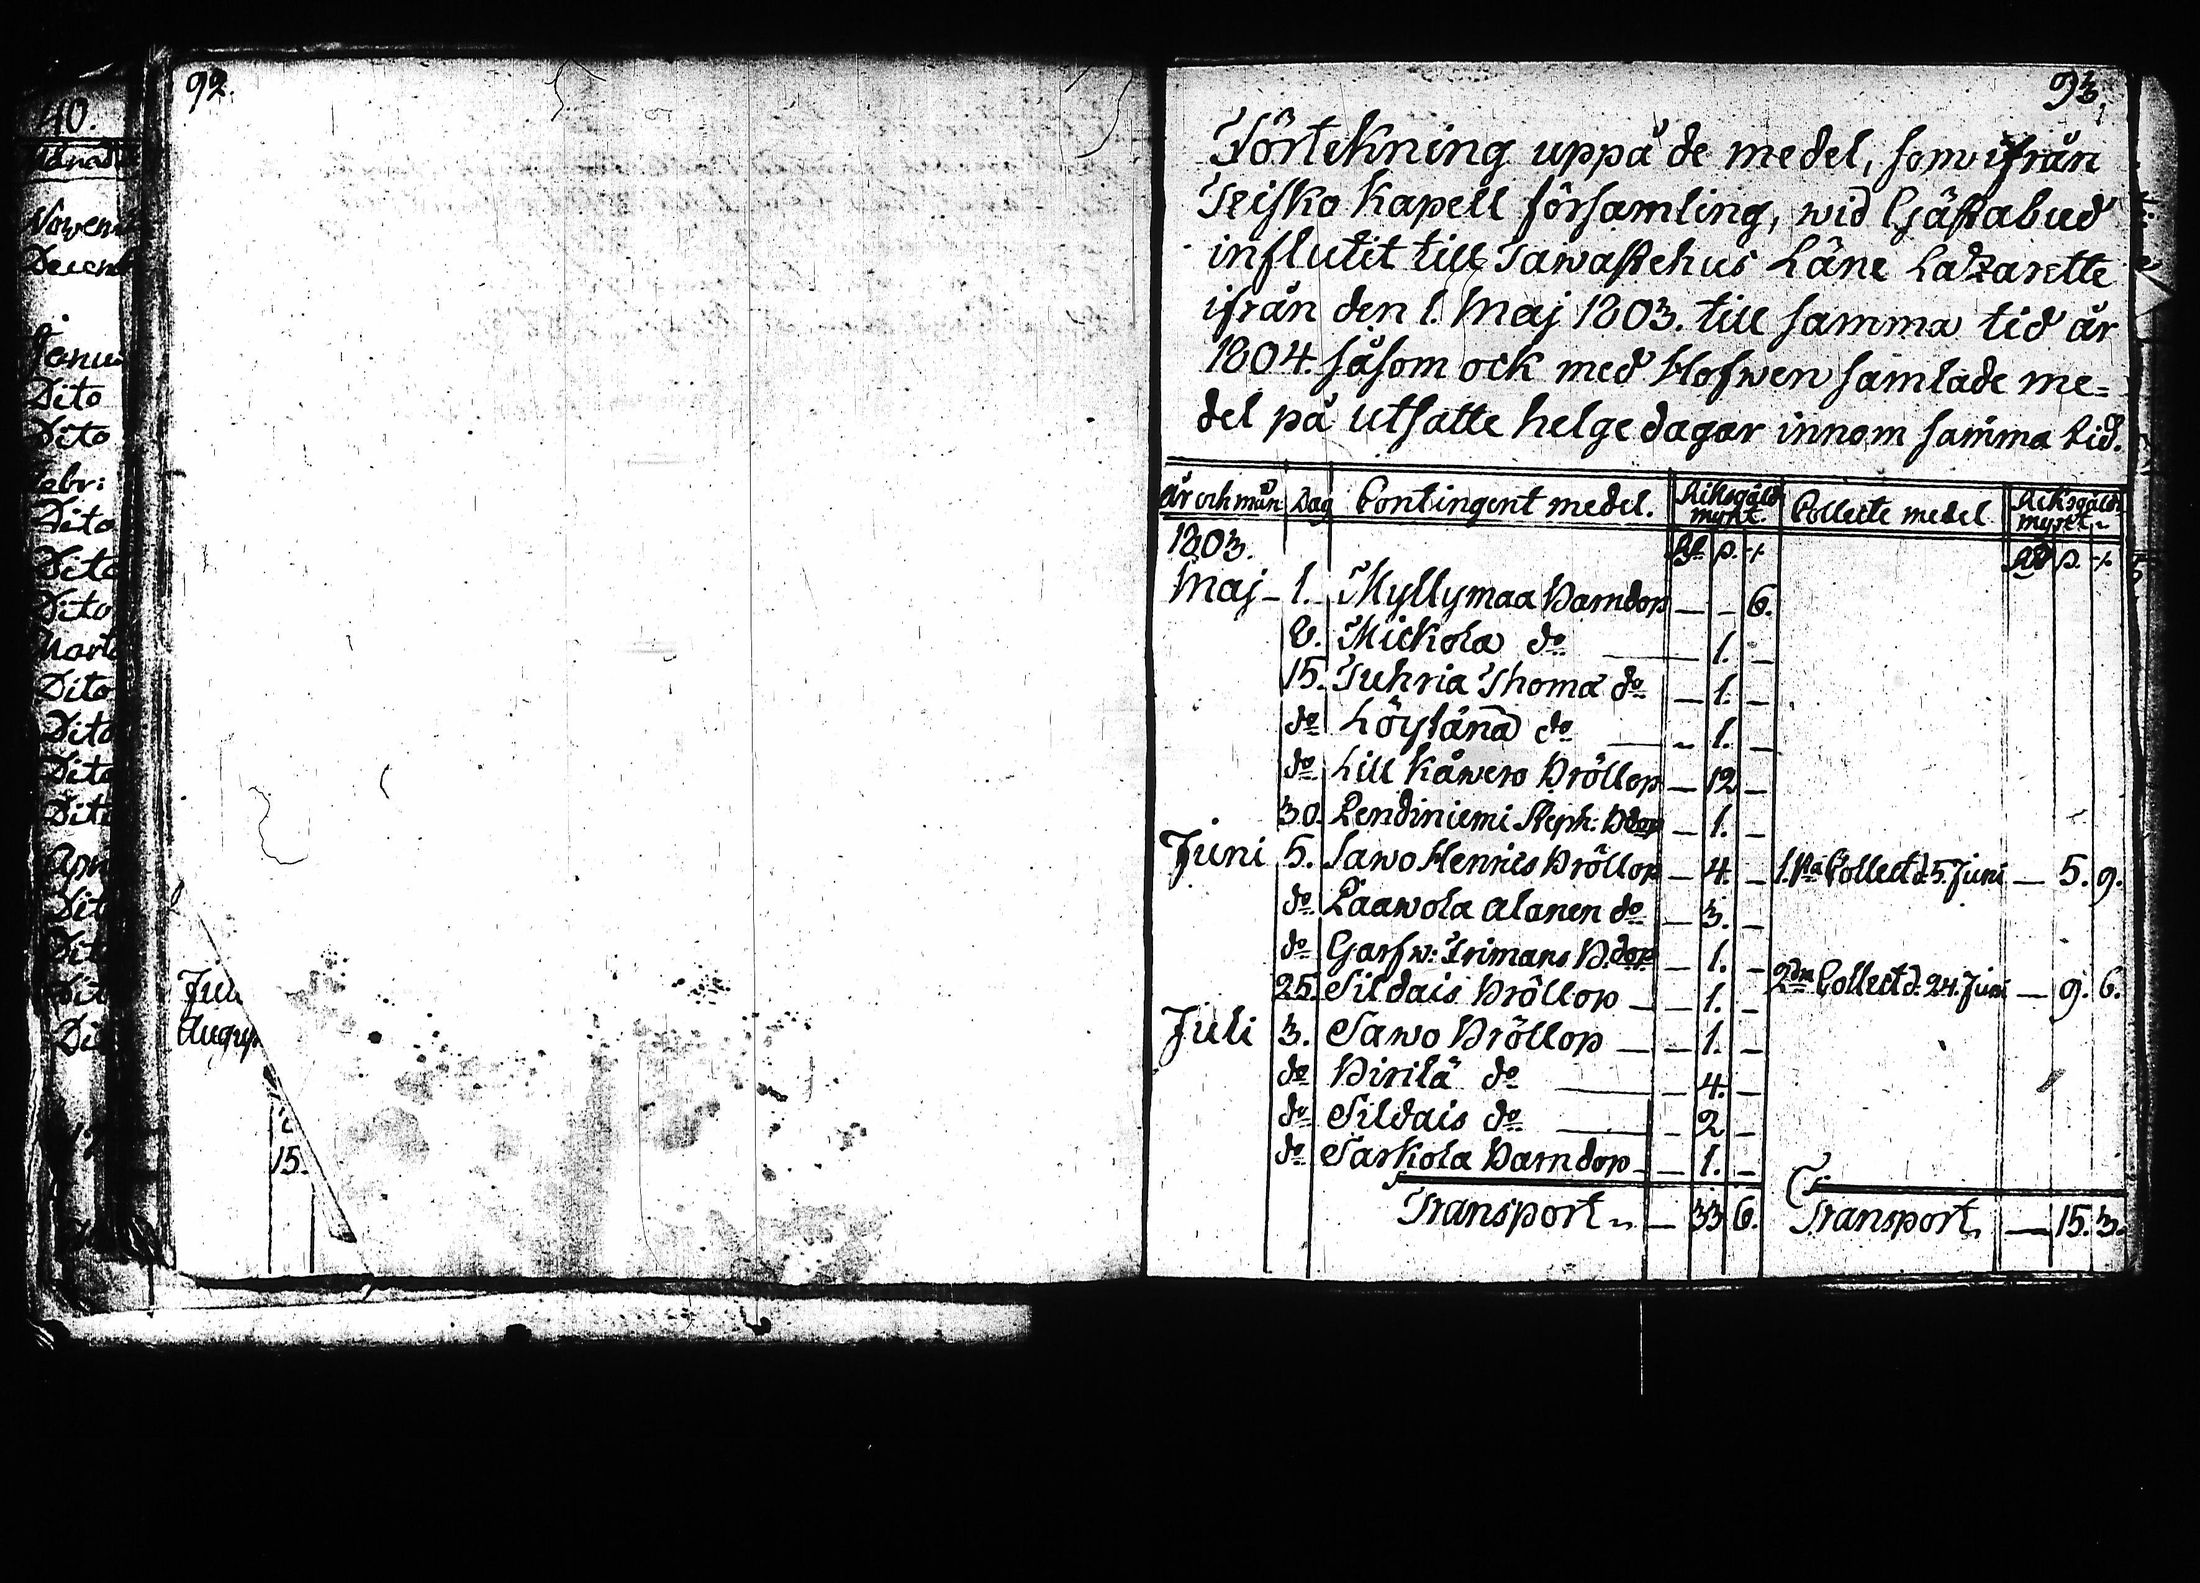 40.
Månad
Novem
Decem
Janua
Dito
Dito
Febr:
Dito
Dito
Dito
Marti
Dito
Dito
Dito
Dito
Apri
Dit
Dit
Dit
Dit
92.
Juli
August
15.
93.
Förtekning uppå de medel, som ifrån
Teisko Kapell församling, wid Gjästabud
influtit till Tawastehus Läne Latzarette
ifrån den 1. Maj 1803. till samma tid år
1804. såsom ock med Hofwen samlade me=
del på utsatte helgedagar innom samma tid.
År och mån Dag Contingent medel. Riksgäld mynt. Collecte medel Riksgälds mynt
1803. Rd ß. rst Rd ß. rst
Maj – 1. Myllymaa Barndop — – 6.
8. Mickola do — 1. —
15. Tuhria Thoma do — 1. —
do Löylänä do — 1. —
do Lill Kåwero Bröllop — 12 —
30. Pendiniemi Steph: Bdop — 1. –
Juni 5. Sawo Henrics Bröllop — 4. – 1.sta Collect d. 5. Juni — 5. 9.
do Paawola Alanen do — 3. —
do Garfw: Trimans B.dop — 1. –
25. Sildais Bröllop — 1. — 2dra Collect d. 24. Juni — 9. 6.
Juli 3. Sawo Bröllop — — 1. —
do Birilä do — 4. —
do Sildais do — 2 —
do Sarkola Barndop — 1. —
Transport — 33 6. Transport — 15. 3.